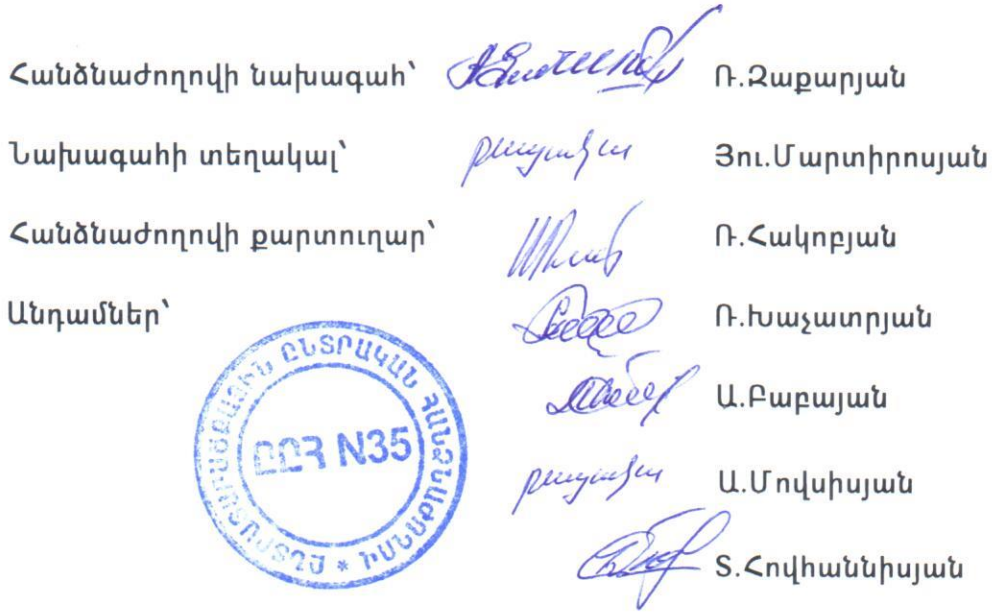 Հանձնաժողովի նախագահ՝ Ռ.Զաքարյան
Նախագահի տեղակալ՝ բացակա Յու.Մարտիրոսյան
Հանձնաժողովի քարտուղար՝ Ռ.Հակոբյան
Անդամներ՝ Ռ.Խաչատրյան
Ա.Բաբայան
բացակա Ա.Մովսիսյան
Տ.Հովհաննիսյան
ԸՆՏՐԱԿԱՆ ՀԱՆՁՆԱԺՈՂՈՎ
ԸԸՀ N35